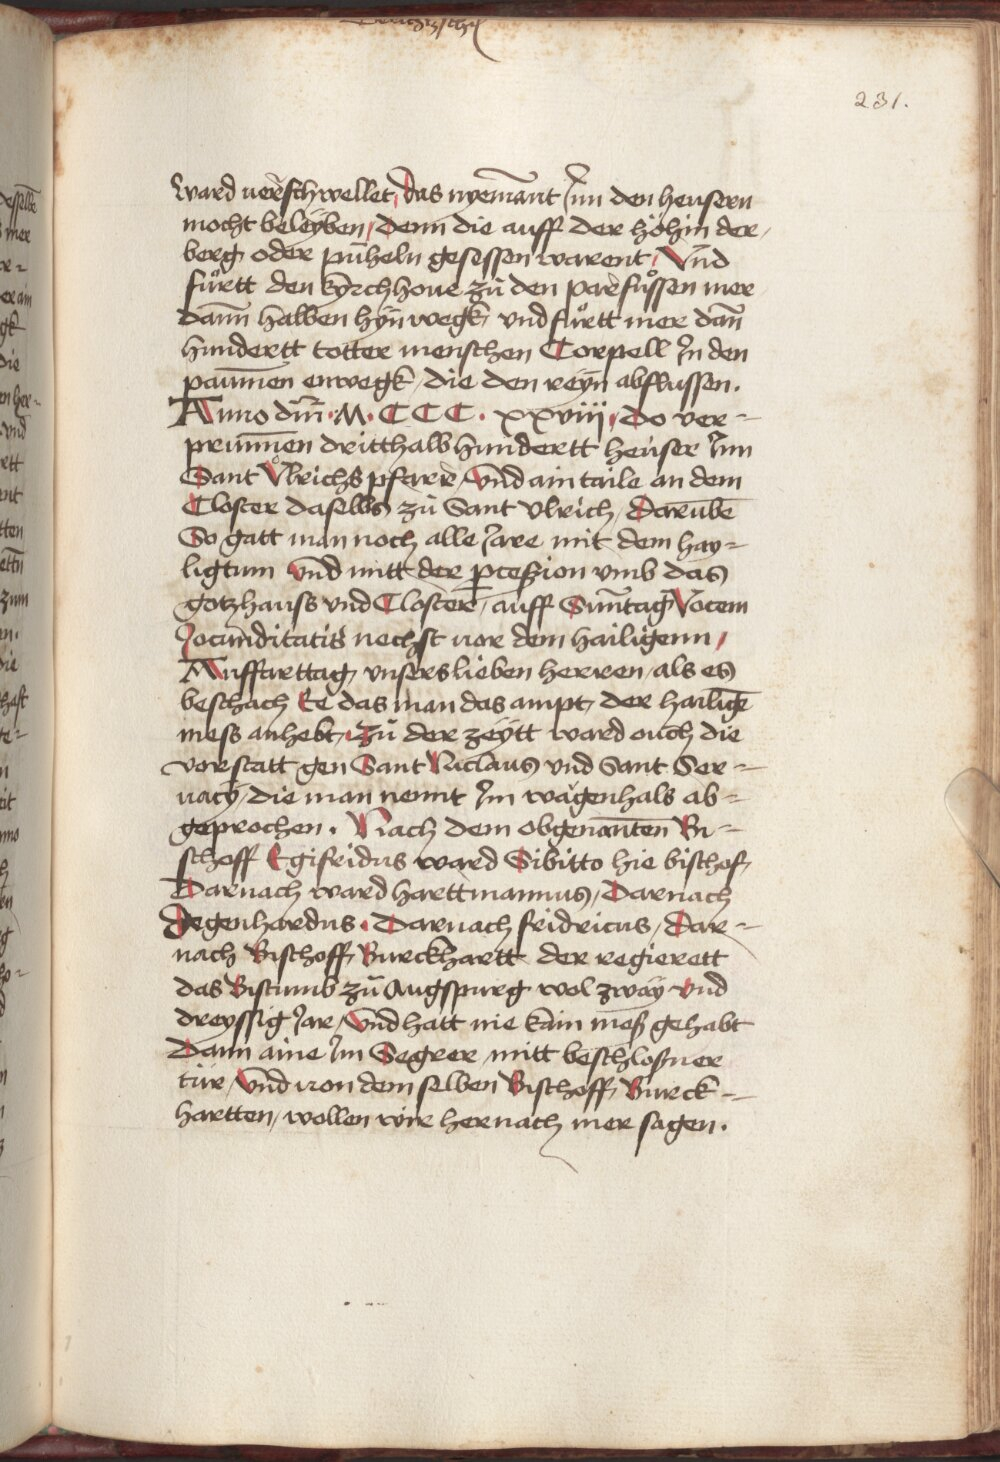 231.
ward uerschwellet / das nyemant Jnn den heusern
mocht beleyben / Denn die auff der höhin der /
berg oder püheln gesessen warent / Vnd
fuͦrtt den kyrchhoue zuͦ den parfuͦssen mer
dann halben hyn wegk vnd fuͦrtt mer dañ
hundertt totter menschen Corpell Jn den
paum̄en enwegk / die den reyn abflussen.
Anno dm̄ · M · CCC · xxviiij / Do ver-
prun̄nen dritthalb hundertt heuser Jnn
Sant Vͦlrichs pfarr / Vnd ain taile an dem
Closter daselbs zuͦ Sant vlrich / Darumbē
So gatt man noch alle Jare mit dem hay-
ligtum vnd mitt der ꝓceßion vmb das
gotzhauss vnd Closterr / auff Sun̄tag Vocem
Jocunditatis nechst vor dem hailigenn /
Auffarttag vnsers lieben herren / als es
beschach Ee das man das ampt der hailigē
mess anhebt / Zuͦ der zeytt ward ouch die
vorstatt gen Sant Niclaus vnd Sant Ser-
uacy / die man nennt Jm wagenhals ab-
geprochen . Nach dem obgenanten Bi-
schoff Egifridus ward Sibitto hie bischof
Darnach ward harttmannus / Darnach
Degenhardus . Darnach fridricus / Dar-
nach Bischoff Burckhartt der regierett
das Bistumb zuͦ Augspurg wol zway vnd
dreyssig Jar / Vnd hatt nie kain meß gehabt
Dann aine Jm Segrer mitt beschloßner
tür / Vnd von dem selben Bischoff Burck-
hartten / wollen wir hernach mer sagen .